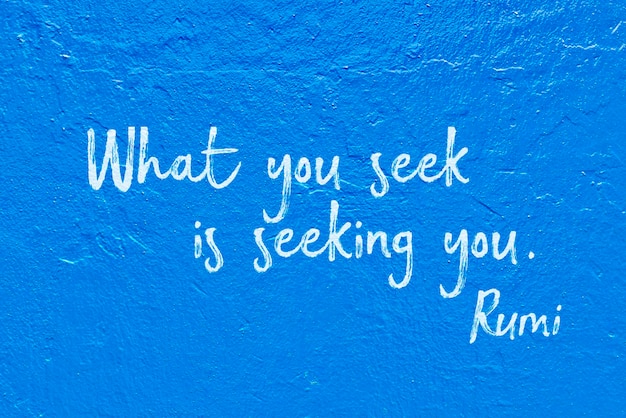 What you seek
is seeking you.
Rumi